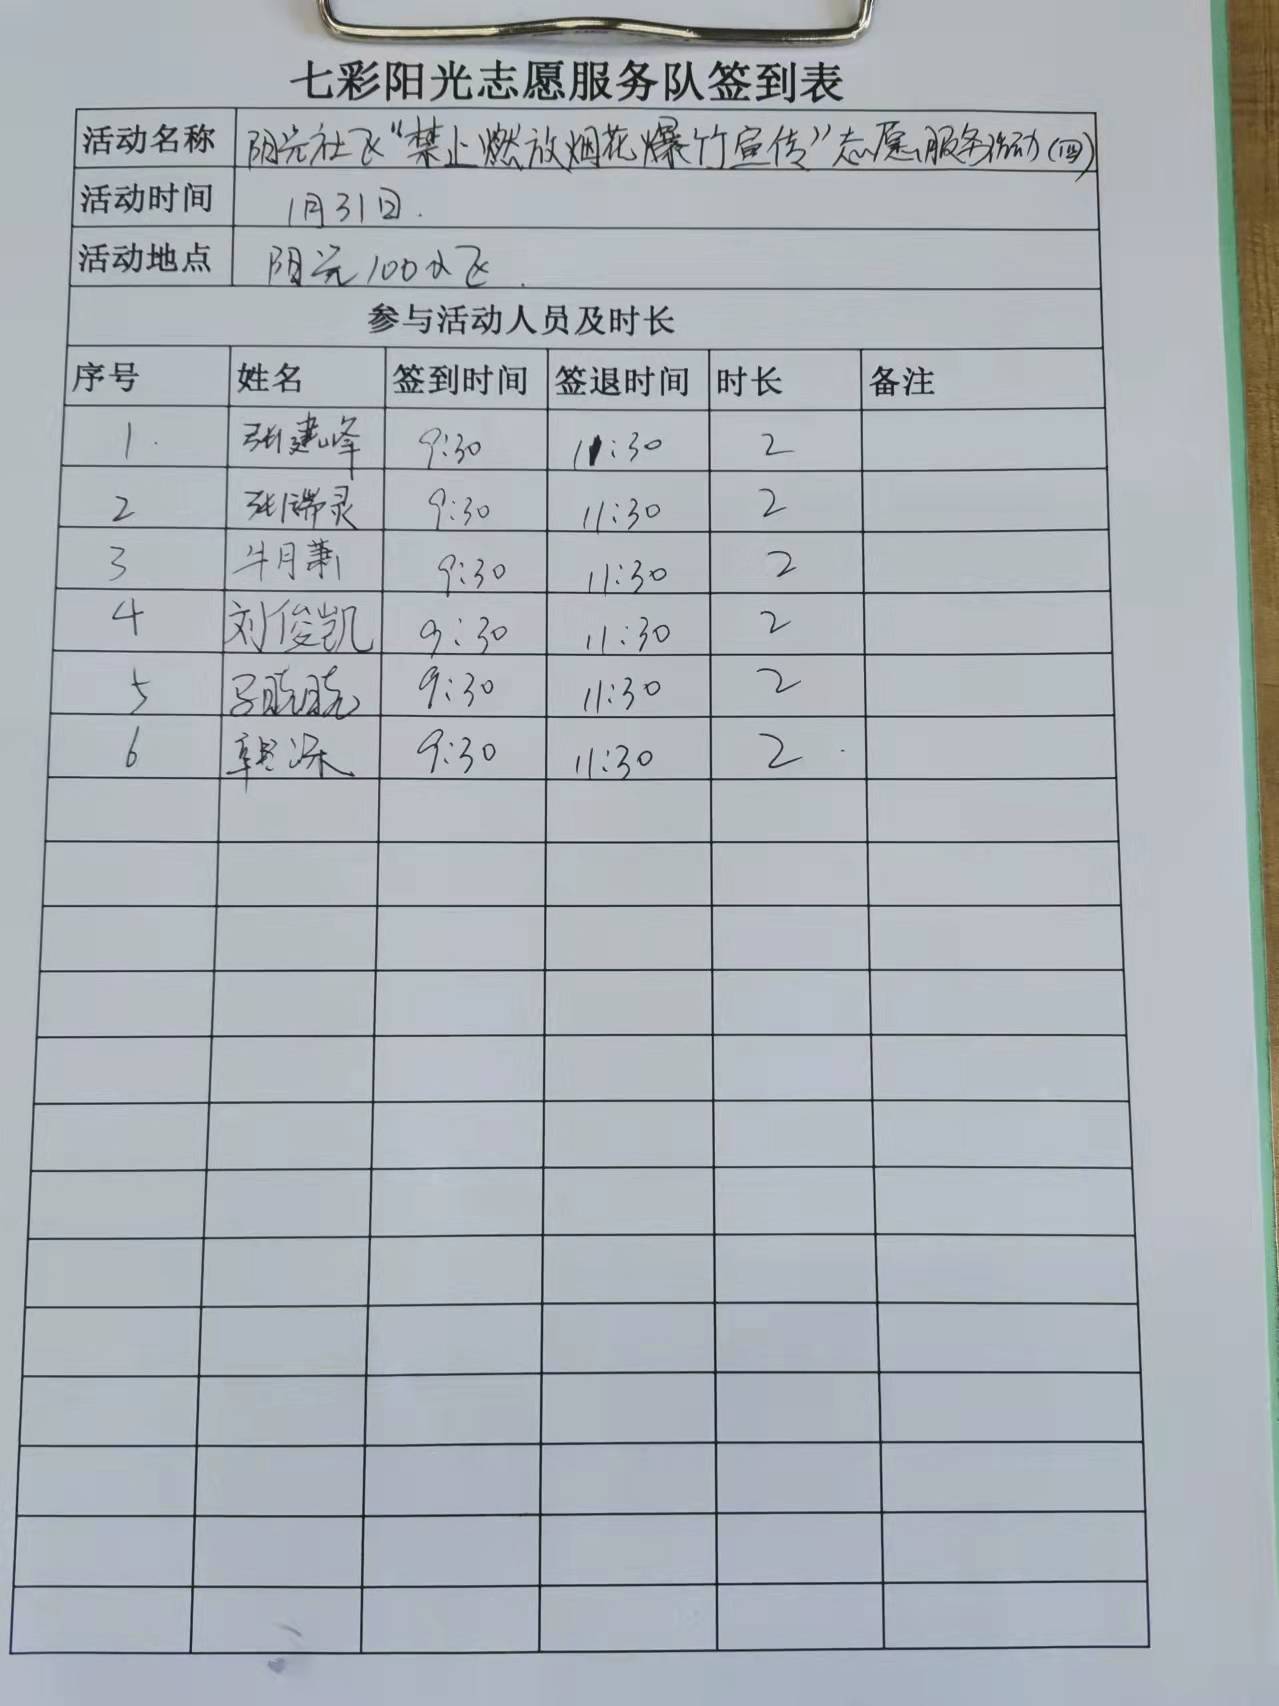 七彩阳光志愿服务队签到表
活动名称 阳光社区“禁止燃放烟花爆竹宣传”志愿服务活动(四)
活动时间 1月31日.
活动地点 阳光100小区.
参与活动人员及时长
序号 姓名 签到时间 签退时间 时长 备注
1. 张建峰 9:30 11:30 2
2 9:30 11:30 2
3 牛月 9:30 11:30 2
4 刘俊凯 9:30 11:30 2
5 晓晓 9:30 11:30 2
6 韩 9:30 11:30 2